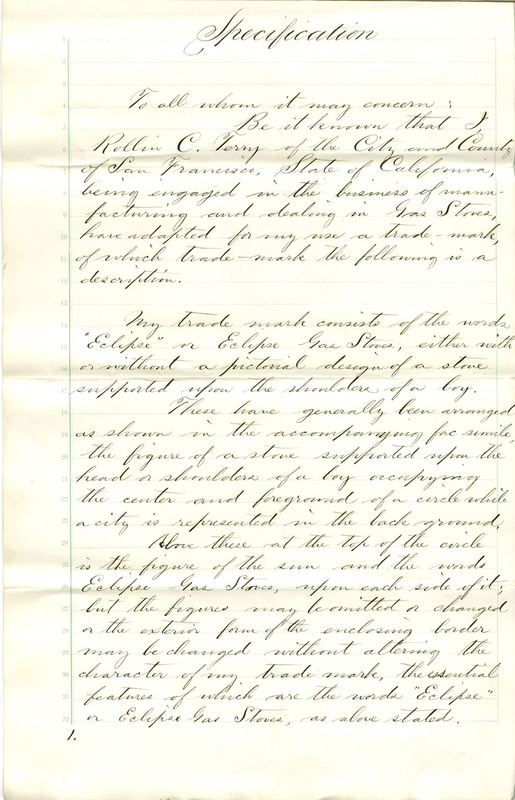 Specification
To all whom it may concern;
Be it known that I,
Rollin C. Terry of the City and County
of San Francisco, State of California,
being engaged in the business of manu-
facturing and dealing in Gas Stoves,
have adapted for my use a trade-mark,
of which trade-mark the following is a
description.
My trade mark consists of the words
"Eclipse" or Eclipse Gas Stoves, either with
or without a pictorial design of a stove
supported upon the shoulders of a boy.
These have generally been arranged
as shown in the accompanying fac simile,
the figure of a stove supported upon the
head or shoulders of a boy occupying
the center and foreground of a circle while
a city is represented in the back ground.
Above these at the top of the circle
is the figure of the sun and the words
Eclipse Gas Stoves, upon each side of it;
but the figures may be omitted or changed
or the exterior form of the enclosing border
may be changed without altering the
character of my trade mark, the essential
features of which are the words "Eclipse"
or Eclipse Gas Stoves, as above stated.
1.